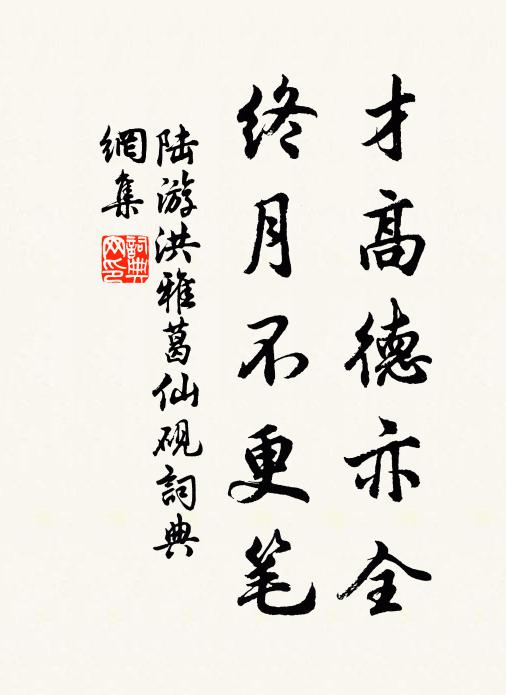 才高德亦全
终月不更笔
陆游洪雅葛仙砚詞典
網集
詞典网印